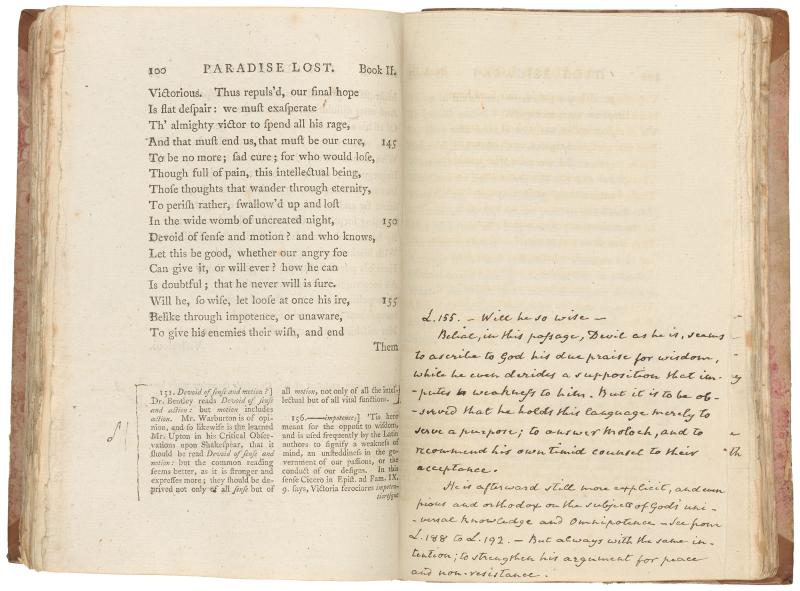 100 PARADISE LOST. Book II.
Victorious. Thus repuls'd, our final hope
Is flat despair: we must exasperate
Th' almighty victor to spend all his rage,
And that must end us, that must be our cure, 145
To be no more; sad cure; for who would lose,
Though full of pain, this intellectual being,
Those thoughts that wander through eternity,
To perish rather, swallow'd up and lost
In the wide womb of uncreated night, 150
Devoid of sense and motion? and who knows,
Let this be good, whether our angry foe
Can give it, or will ever? how he can
Is doubtful; that he never will is sure.
Will he, so wise, let loose at once his ire, 155
Belike through impotence, or unaware,
To give his enemies their wish, and end
Them
151. Devoid of sense and motion?]
Dr. Bentley reads Devoid of sense
and action: but motion includes
action. Mr. Warburton is of opi-
nion, and so likewise is the learned
Mr. Upton in his Critical Obser-
vations upon Shakespear, that it
should be read Devoid of sense and
motion: but the common reading
seems better, as it is stronger and
expresses more; they should be de-
prived not only of all sense but of
all motion, not only of all the intel-
lectual but of all vital functions.
156.——impotence;] 'Tis here
meant for the opposit to wisdom,
and is used frequently by the Latin
authors to signify a weakness of
mind, an unsteddiness in the go-
vernment of our passions, or the
conduct of our designs. In this
sense Cicero in Epist. ad Fam. IX.
9. says, Victoria ferociores impoten-
tioresque
L. 155. - Will he so wise -
Belial, in this passage, Devil as he is, seems
to ascribe to God his due praise for wisdom,
while he even derides a supposition that im-
-putes weakness to him. But it is to be ob-
-served that he holds this language merely to
serve a purpose; to answer Moloch, and to
recommend his own timid counsel to their
acceptance.
He is afterward still more explicit, and even
pious and orthodox on the subjects of God's uni-
-versal Knowledge and Omnipotence - See from
L. 188 to L. 192. - But always with the same in-
tention; to strengthen his argument for peace
and non-resistance.